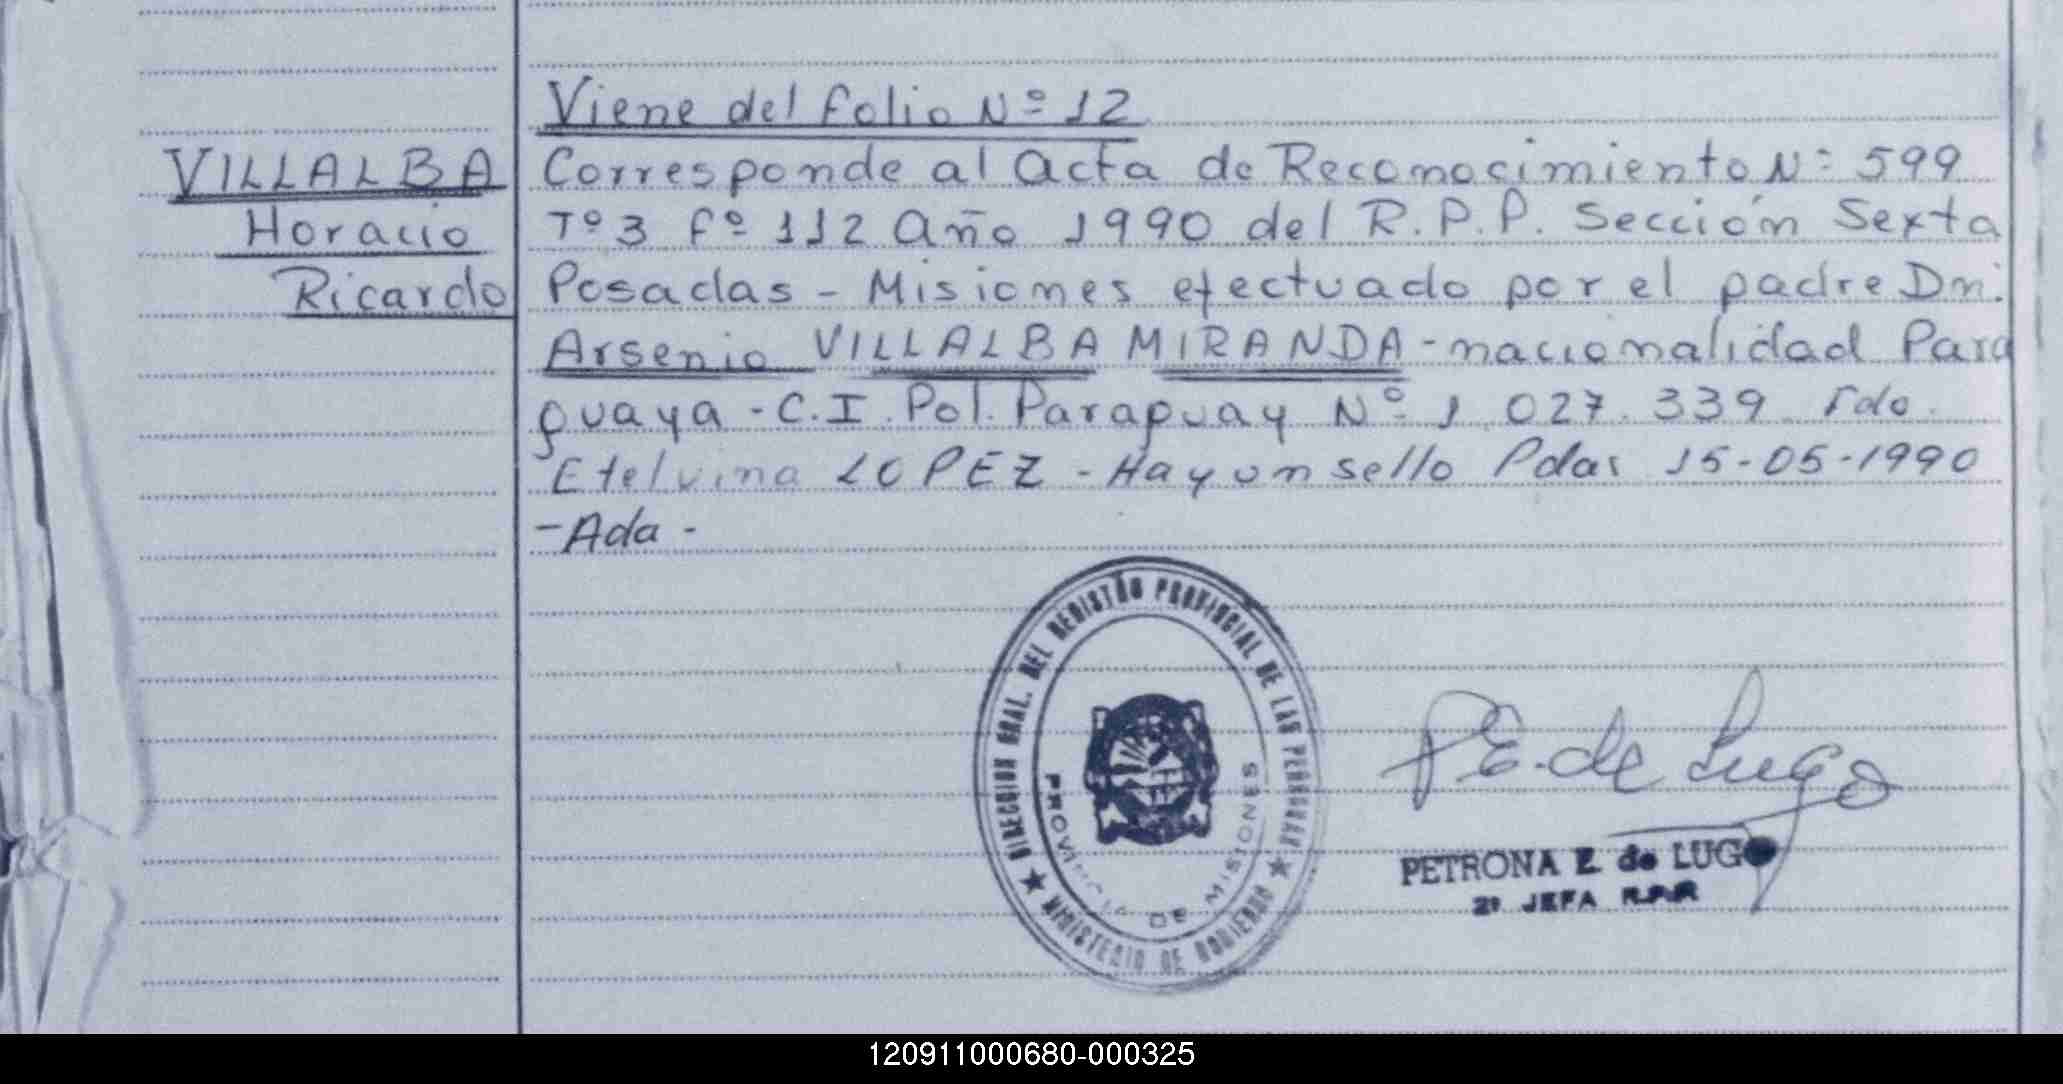 Viene del folio Nº 12
VILLALBA
Horacio
Ricardo
Corresponde al Acta de Reconocimiento Nº 599
Tº 3 Fº 112 Año 1990 del R.P.P. Sección Sexta
Posadas - Misiones efectuado por el padre Dn.
Arsenio VILLALBA MIRANDA - nacionalidad Para
guaya - C.I. Pol. Paraguay Nº 1.027.339 Fdo.
Etelvina LOPEZ - Hay un sello Pdas 15-05-1990
- Ada -
DIRECCION GRAL. DEL REGISTRO PROVINCIAL DE LAS PERSONAS
PROVINCIA DE MISIONES
★ MINISTERIO DE GOBIERNO ★
P.E. de Lugo
PETRONA E. de LUGO
2º JEFA R.P.P.
120911000680-000325